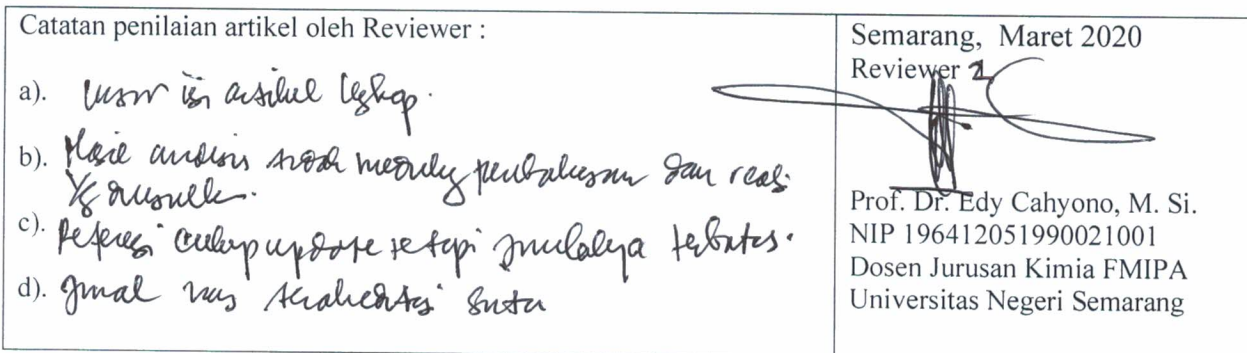 Catatan penilaian artikel oleh Reviewer :
a). unsur isi artikel lengkap.
b). Hasil analisis sudah mendukung pembahasan dan reaksi
yg
c). Referensi cukup update tetapi jumlahnya terbatas.
d). Jurnal nas terakreditasi Sinta
Semarang, Maret 2020
Reviewer 2
Prof. Dr. Edy Cahyono, M. Si.
NIP 196412051990021001
Dosen Jurusan Kimia FMIPA
Universitas Negeri Semarang